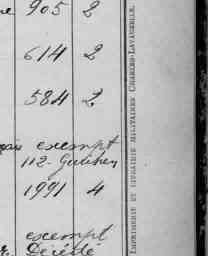 905 2
614 2
584 2
exempt
112
1991 4
exempt
Décédé
IMPRIMERIE ET LIBRAIRIE MILITAIRES CHARLES-LAVAUZELLE.